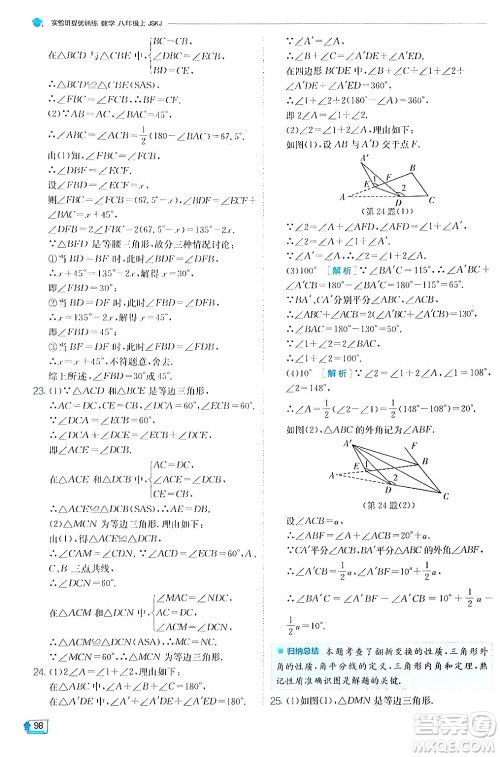 实验班提优训练 数学 八年级上 JSKJ
BC=CB,
∠DCB=∠EBC,
DC=EB,
∴△BCD≌△CBE(SAS).
∴∠FBC=∠FCB.∴BF=CF.
(2)∵AB=AC,∠BAC=45°,
∴∠ABC=∠ACB=1/2(180°-∠BAC)=67.5°.
由(1)知,∠FBC=∠FCB,
∴∠DBF=∠ECF.
设∠FBD=∠ECF=x,
则∠FBC=∠FCB=(67.5°-x),
∠BDF=∠ECF+∠BAC=x+45°,
∠DFB=2∠FBC=2(67.5°-x)=135°-2x.
∵△BFD是等腰三角形,故分三种情况讨论:
①当BD=BF时,此时∠BDF=∠DFB,
∴x+45°=135°-2x,解得x=30°.
∴∠FBD=30°.
②当BD=DF时,此时∠FBD=∠DFB,
∴x=135°-2x,解得x=45°.
∴∠FBD=45°.
③当BF=DF时,此时∠FBD=∠FDB,
∴x=x+45°,不符题意,舍去.
综上所述,∠FBD=30°或45°.
23. (1)∵△ACD和△BCE是等边三角形,
∴AC=DC,CE=CB,∠DCA=60°,
∠ECB=60°.
∴∠DCA+∠DCE=∠ECB+∠DCE,
∠ACE=∠DCB.
在△ACE和△DCB中,
AC=DC,
∠ACE=∠DCB,
CE=CB,
∴△ACE≌△DCB(SAS).∴AE=BD.
(2)△MCN为等边三角形.理由如下:
∵由(1)得△ACE≌△DCB,
∴∠CAM=∠CDN.∵∠ACD=∠ECB=60°,
A、C、B三点共线,
∴∠DCN=60°.
在△ACM和△DCN中,
∠MAC=∠NDC,
AC=DC,
∠ACM=∠DCN=60°,
∴△ACM≌△DCN(ASA).∴MC=NC.
∵∠MCN=60°,∴△MCN为等边三角形.
24. (1)2∠A=∠1+∠2.理由如下:
在△ADE中,∠A+∠AED+∠ADE=180°.
在△A'DE中,∠A'+∠A'ED+∠A'DE=180°.
∵∠A=∠A',
∴∠A'ED+∠A'DE=180°-∠A.
在四边形BCDE中,∠A+∠1+∠A'ED+
∠2+∠A'DE=360°,
∴∠1+∠2=2∠A.
(2)∠2=2∠A+∠1.理由如下:
如图(1),设AB与DA'交于点F.
A' B E F 1 2 A D C
(第24题(1))
∵∠2=∠A+∠DFA,∠DFA=∠A'+∠1,
∴∠2=∠A+∠A'+∠1.∵∠A=∠A',
∴∠2=2∠A+∠1.
(3)100° [解析]∵∠BA'C=115°,
∴∠A'BC+∠A'CB=180°-∠BA'C=65°.
∵BA',CA'分别平分∠ABC,∠ACB,
∴∠ABC+∠ACB=2(∠A'BC+∠A'CB)=130°,
∴∠BAC=180°-(∠ABC+∠ACB)=50°.
由(1)知,∠1+∠2=2∠BAC,
∴∠1+∠2=100°.
(4)10° [解析]∵∠2=2∠A+∠1,∠1=108°,
∠2=148°,∴∠2-∠1=148°-108°=40°=2∠A,
∴∠A=20°.
如图(2),△ABC的外角记为∠ABF.
(第24题(2))
设∠ACB=α,
∴∠ABF=∠A+∠ACB=20°+α.
∵CA'平分∠ACB,BA'平分∠ABF,
∴∠A'BF=1/2∠ABF=10°+1/2α,∠A'CB=
1/2α.∴∠BA'C=∠A'BF-∠A'CB=10°.
归纳总结 本题考查了翻折变换的性质,三角形外
角的性质,角平分线的定义,三角形内角和定理,熟
记性质准确识图是解题的关键.
25. (1)如图(1),△DMN是等边三角形.
98